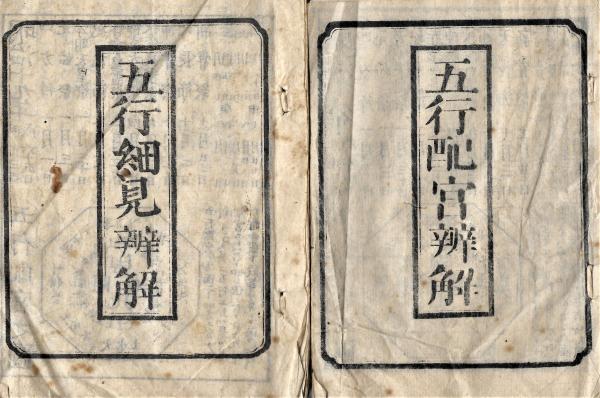 五行配官辨解
五行細見辨解